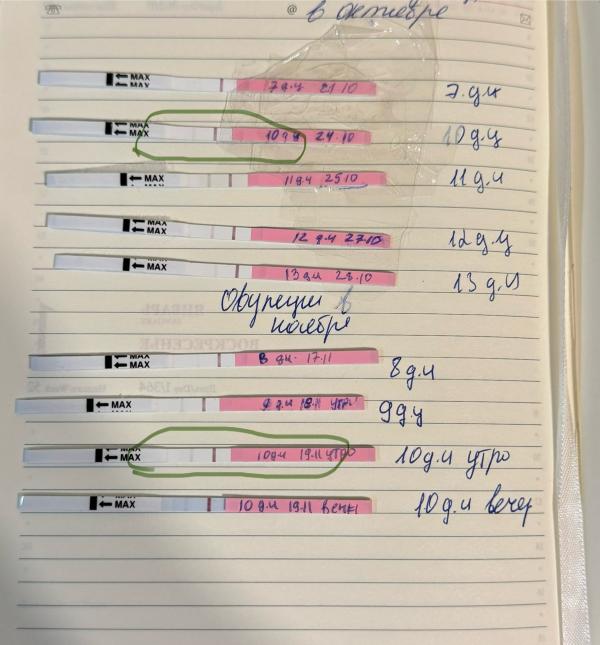 в октябре
MAX
MAX
7 д.ц 21.10
7.д.ц
MAX
MAX
10 д.ц 24.10
10д.ц
MAX
MAX
11 д.ц 25.10
11д.ц
MAX
MAX
12 д.ц 27.10
12д.ц
MAX
13 д.ц 28.10
13 д.ц
Овуляции в
ноябре
ЯНВАРЬ
ВОСКРЕСЕНЬЕ
MAX
MAX
8 дц. 17.11
8д.ц
MAX
9 д.ц 18.11 утро
9д.ц
MAX
MAX
10д.ц 19.11 утро
10д.ц утро
MAX
10 д.ц 19.11 вечер
10д.ц вечер